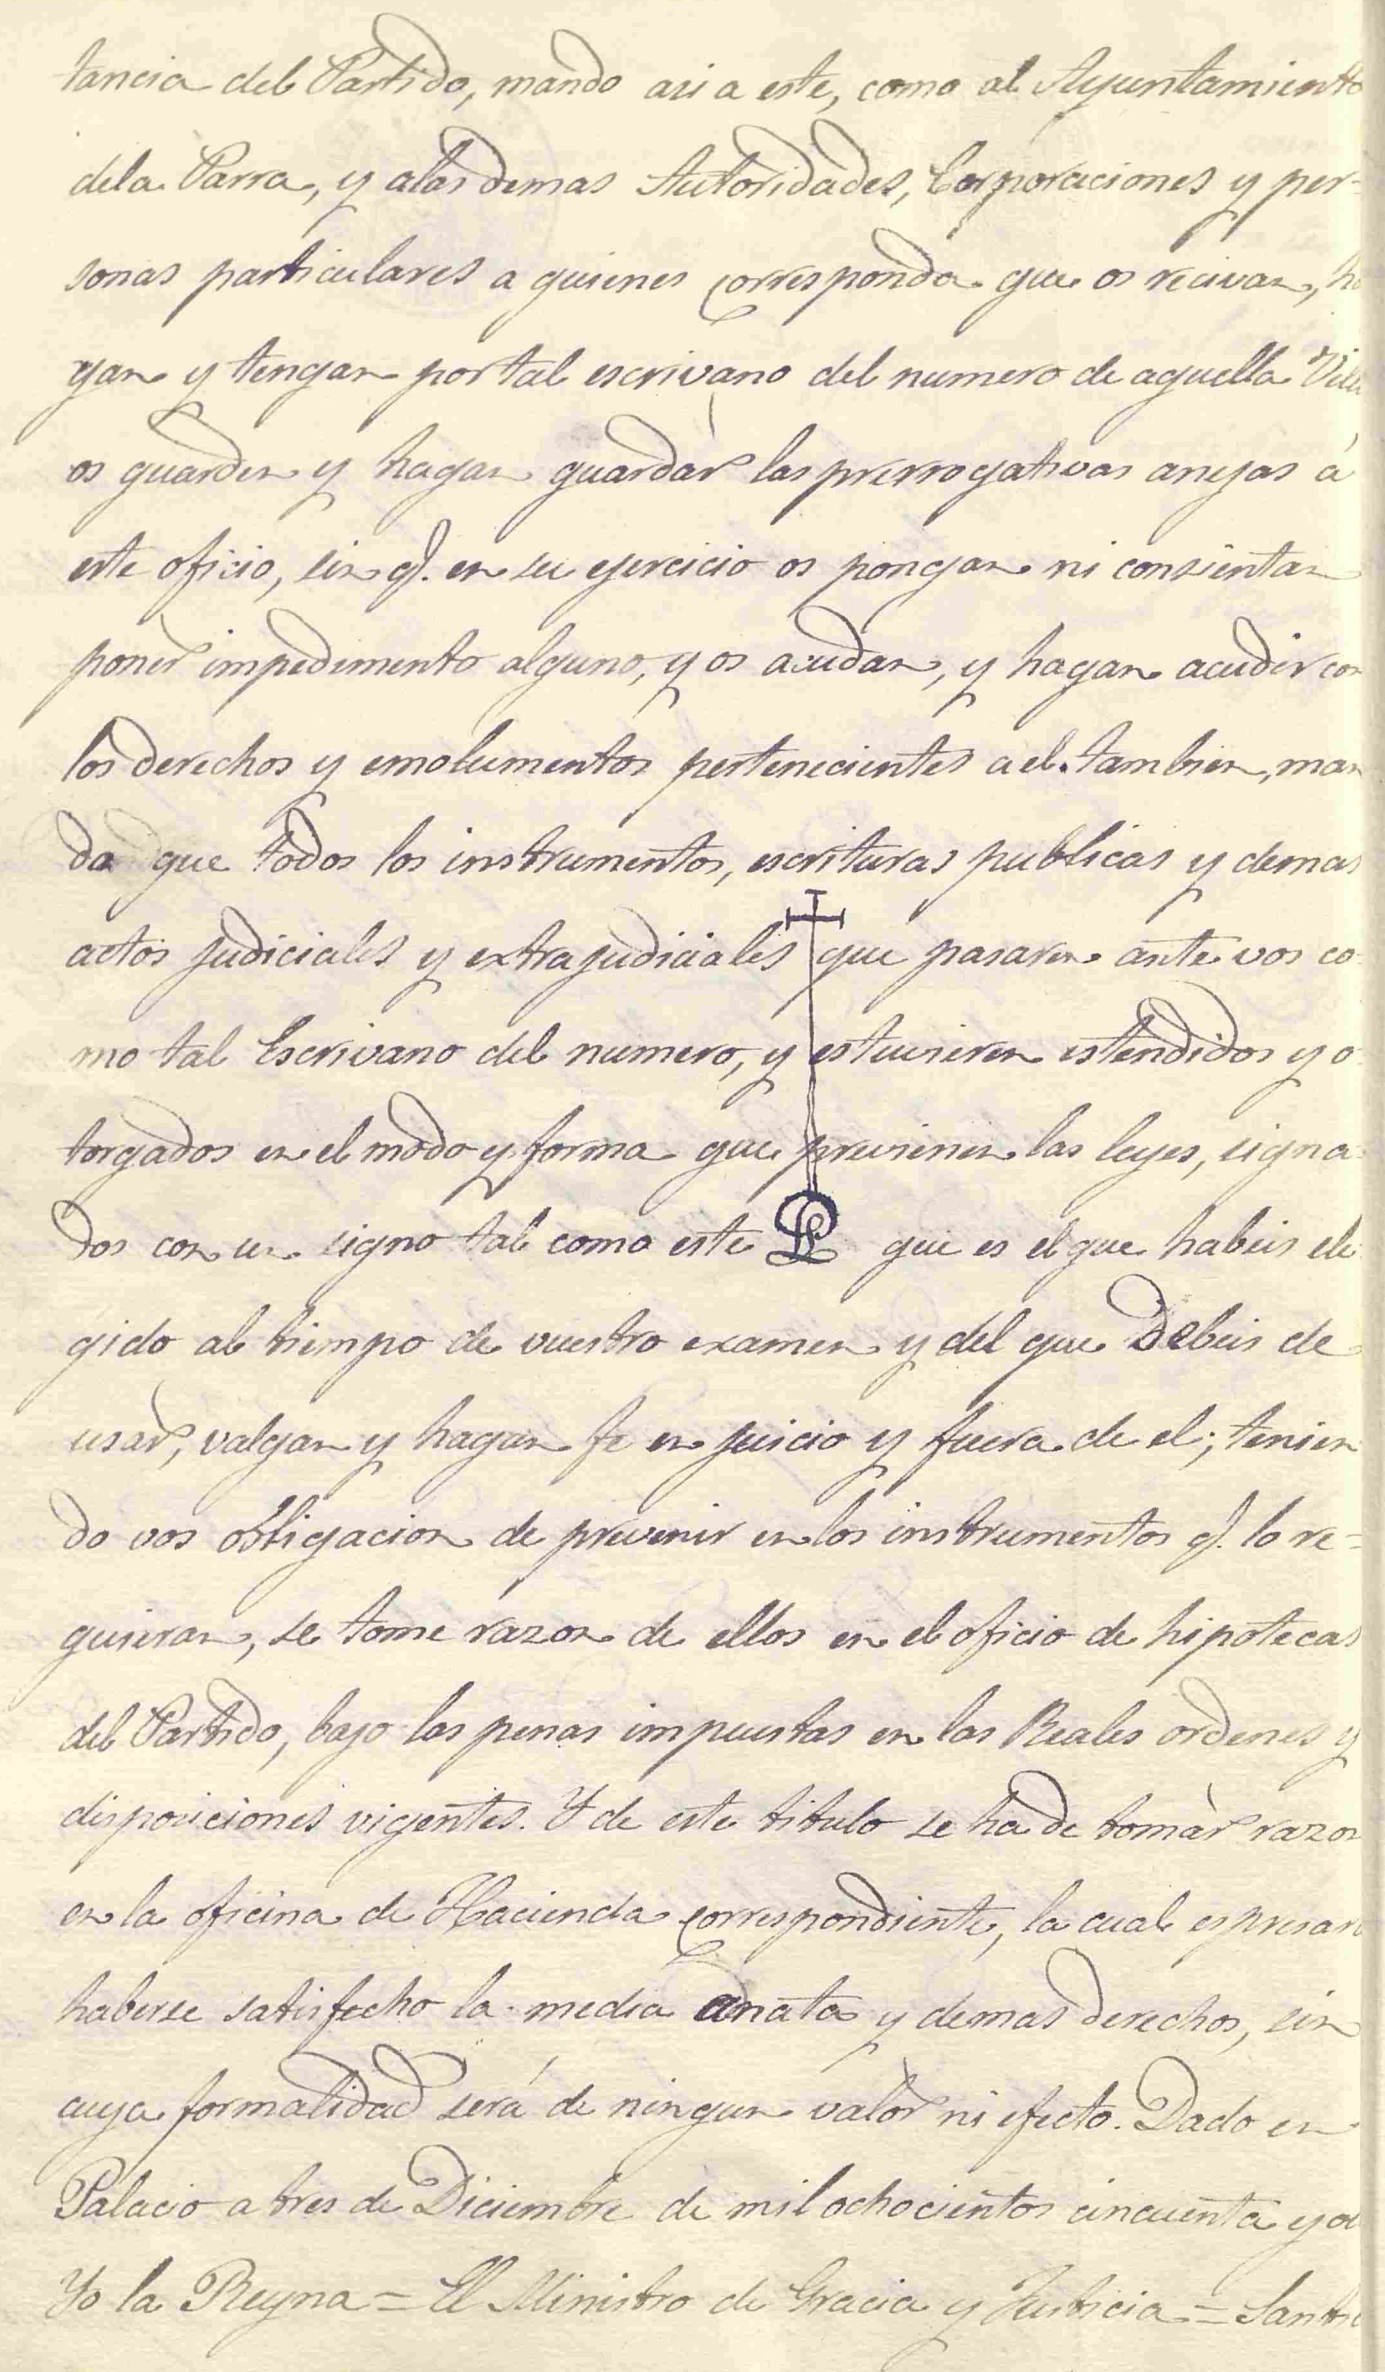 tancia del Partido, mando asi a este, como al Ayuntamiento
dela Parra, y alas demas Autoridades, Corporaciones y per-
sonas particulares a quienes corresponda que os recivan, ha
gan y tengan por tal escrivano del numero de aquella Villa
os guarden y hagan guardar las prerrogativas anejas á
este oficio, sin q.e en su ejercicio os pongan ni consientan
poner impedimento alguno, y os acudan, y hagan acudir con
los derechos y emolumentos pertenecientes a el. Tambien, man
do que todos los instrumentos, escrituras publicas y demas
actos judiciales y extrajudiciales que pasaren ante vos co-
mo tal Escrivano del numero, y estuvieren estendidos y o
torgados en el modo y forma que previenen las leyes, signa-
dos con un signo tal como este que es el que habeis ele
gido al tiempo de vuestro examen y del que Debeis de
usar, valgan y hagan fe en juicio y fuera de el; tenien
do vos obligacion de prevenir en los instrumentos q.e lo re-
quieran, se tome razon de ellos en el oficio de hipotecas
del Partido, bajo las penas impuestas en las Reales ordenes y
disposiciones vigentes. Y de este titulo se ha de tomàr razon
en la oficina de Hacienda correspondiente, la cual espresará
haberse satisfecho la media anata y demas derechos, sin
cuya formalidad será de ningun valor ni efecto. Dado en
Palacio a tres de Diciembre de mil ochocientos cincuenta y
Yo la Reyna = El Ministro de Gracia y Justicia =